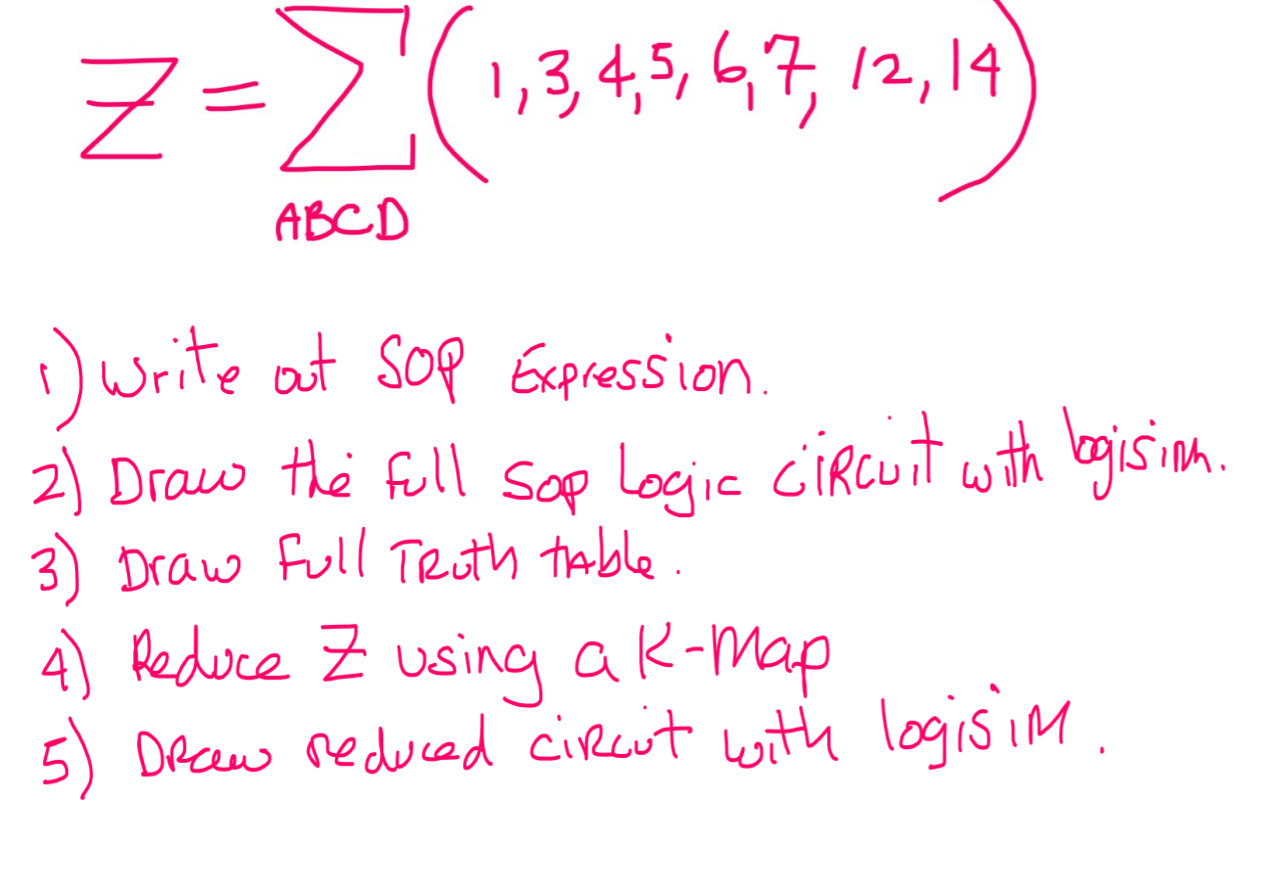 Z = Σ (1,3,4,5,6,7,12,14)
ABCD
1) Write out SOP Expression.
2) Draw the full SOP Logic CIRCUIT with logisim.
3) Draw Full TRUTH tAble.
4) Reduce Z using a K-Map
5) DRaw reduced CIRCUT with logisiM.